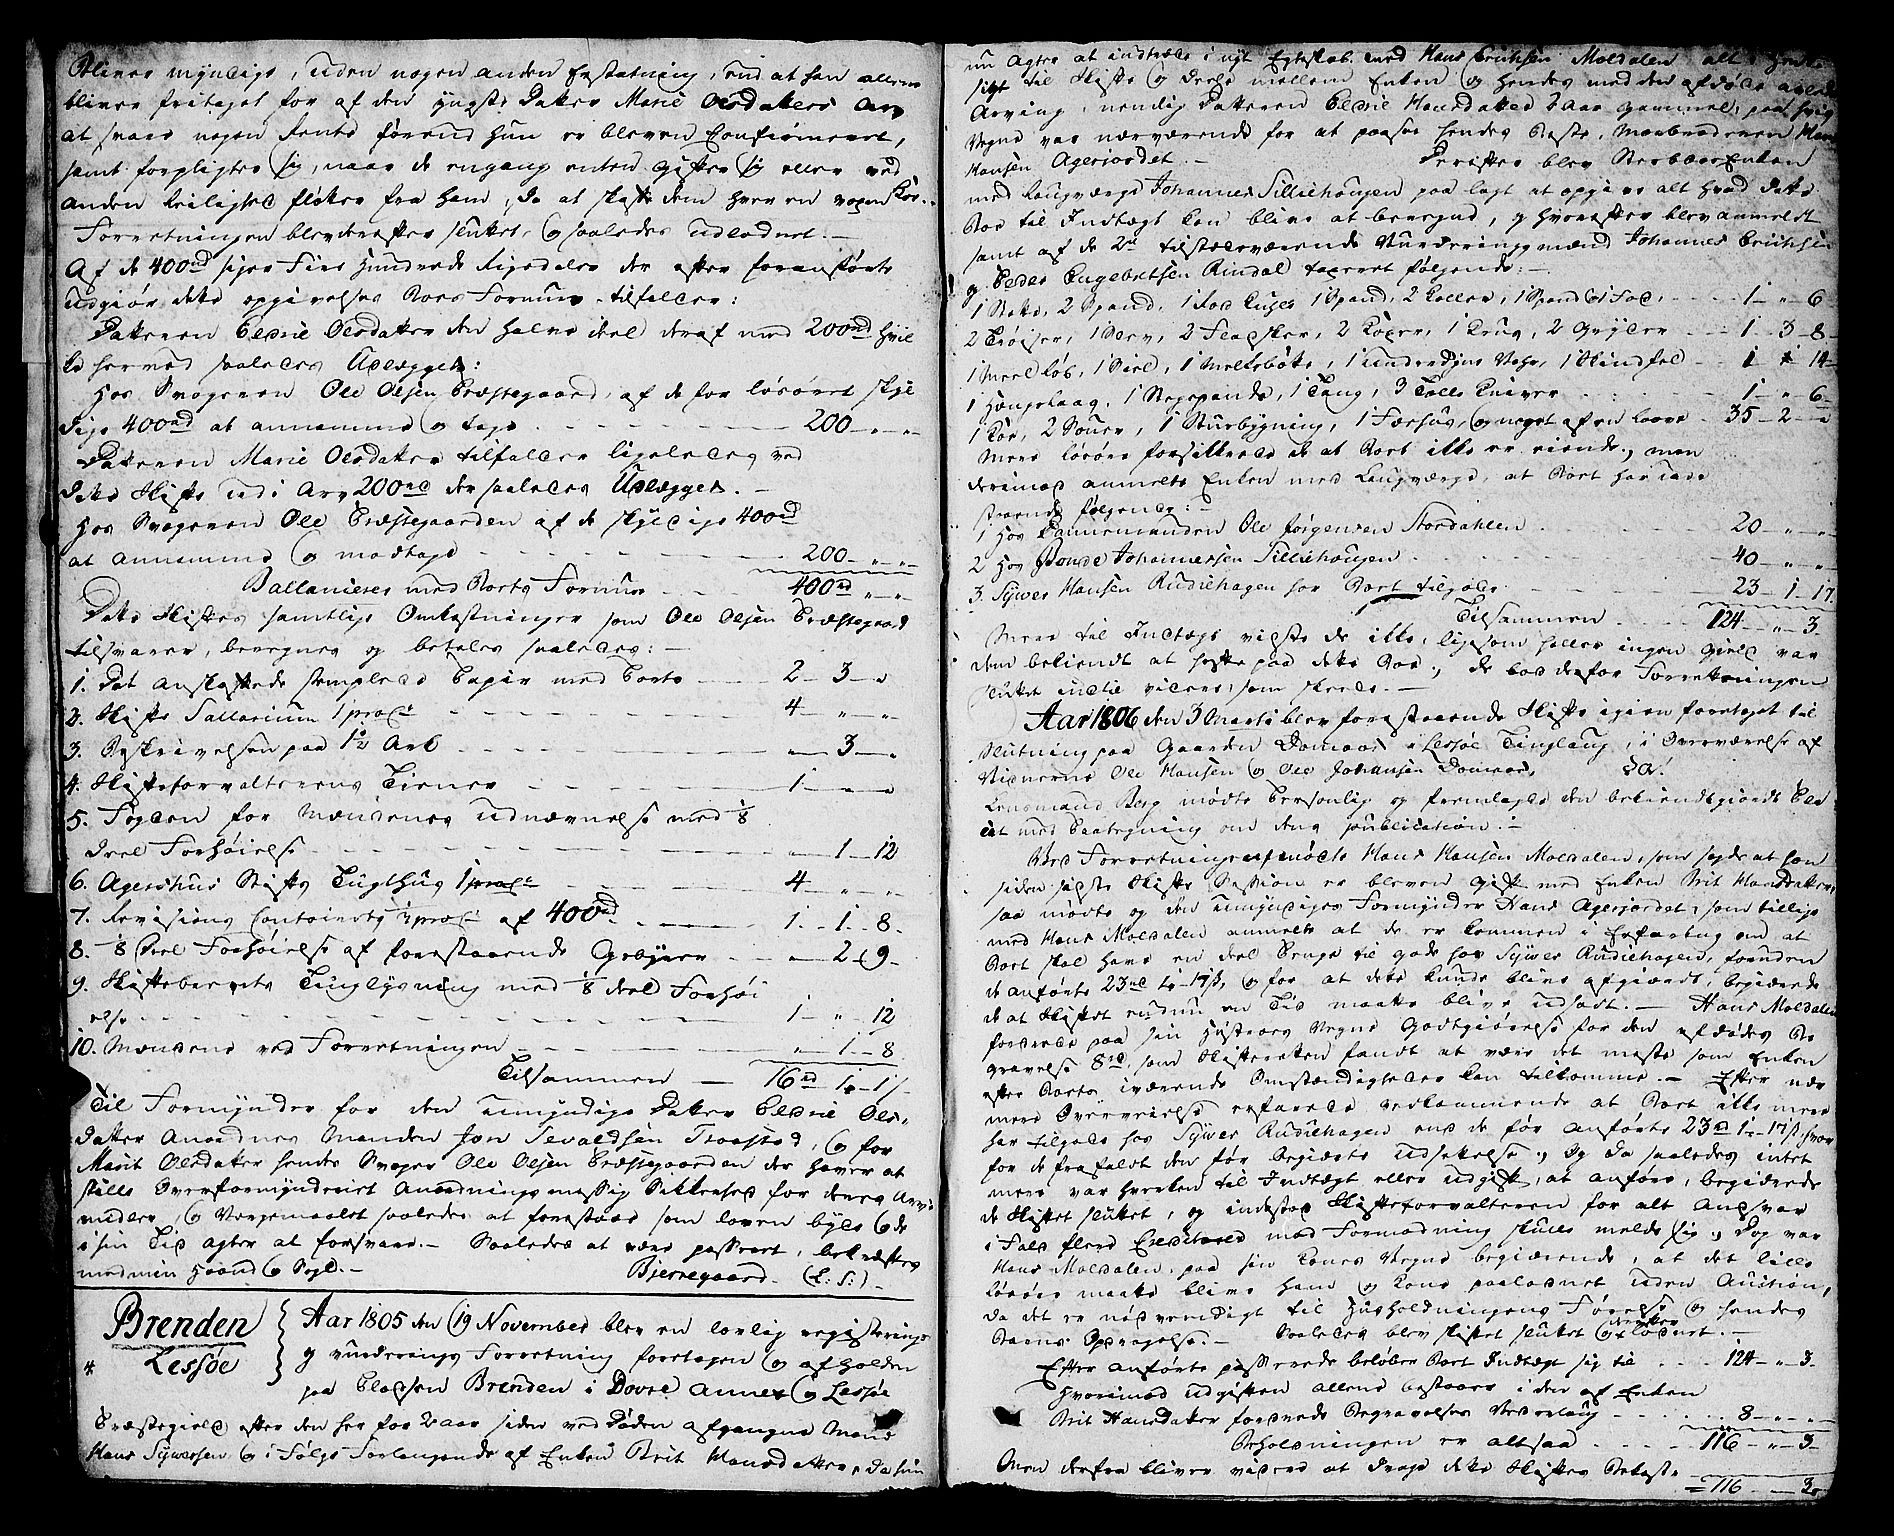 Bliver myndige, uden nogen anden Erstatning, end at han allene
bliver fritaget for af den yngste Datter Marie Olsdatters Arv
at svare nogen Rente førend hun er bleven Confirmeret,
samt forpligter sig, naar de engang enten gifter sig eller ved
anden Leilighed fløtter fra ham, da at skaffe dem hver en
Forretningen blev derefter sluttet, og saaledes udlodnet.
Af de 400rd siger Fire Hundrede Rigsdaler der efter foranførte
udgiør dette opgivelses Boes Formue, tilfalder:
Datteren Eldrie Olsdatter den halve deel deraf med 200rd hvil
ke hermed saaledes Udlægges:
Hos Svogeren Ole Olsen Præstegaard, af de for løsøret skyl
dige 400rd at annamme og tage 200 - " - "
Datteren Marie Olsdatter tilfalder ligeledes ved
dette Skifte udi Arv 200rd der saaledes Udlægges.
Hos Svogeren Ole Præstegaarden af de skyldige 400rd
at annamme og modtage 200 - " - "
Ballancerer med Boets Formue 400rd " - "
Dette Skiftes samtlige Omkostninger som Ole Olsen Præstegaard
tilsvarer, beregnes og betales saaledes:
1. Det anskaffede stemplede Papir med Porto 2 - 3 - "
2. Skifte Sallarium 1 proCt 4 - " - "
3. Beskrivelsen paa 1½ Ark " - 3 - "
4. Skifteforvalterens Tiener 1 - " - "
5. Fogden for Mændenes udnævnelse med 1/8
deel Forhøielse " - 1 - 12
6. Agershus Stifts Tugthus 1 proCt 4 - " - "
7. Revisions Contoirets ¼ proCt af 400rd 1 - 1 - 8
8. 1/8 Deel Forhøielse af forestaaende Gebyrer " - 2 - 9
9. Skiftebrevets Tinglysning med 1/8 deel Forhøi
else 1 - " - 12
10. Mændene ved Forretningen " - 1 - 8
Tilsammen 16rd 1 - 1 s
Til Formynder for den umyndige Datter Eldrie Ols-
datter anordnes Manden Jon Tevaldsen Traasted, og for
Marit Olsdatter hendes Svoger Ole Olsen Præstegaarden der haver at
stille Overformynderiet Anordningsmessig Sikkerhed for deres Arve
midler, og Værgemaalet saaledes at forestaae som loven byder og de
i sin Tid agter at forsvare. Saaledes at være passeret, bekræftes
med min Haand og Segl. Bjerregaard. (L. S.)
Brenden
Lessøe
Aar 1805 den 19 November blev en lovlig registerings
og vurderings Forretning foretagen og afholden
paa Pladsen Brenden i Dovre Annex og Lessøe
Præstegield efter den her for 2 aar siden ved Døden afgangne Mand
Hans Sywersen og i Følge Forlangende af Enken Brit Hansdatter, da hun
nu agter at indtræde i nyt Egteskab med Hans Erichsen Moldalen alt i Hen
sigt til Skifte og Deele mellem Enken og hendes med den afdøde avlede
Arving, nemlig Datteren Eldrie Hansdatter 2 aar gammel, paa hvis
Vegne var nærværende for at paasee hendes Beste, Morbroderen Hans
Hansen Agerjordet. Derefter blev Sterboe Enken
med Laugværge Johannes Lilliehougen paa lagt at opgive alt hvad dette
Boe til Indtægt kan blive at beregne, og hvorefter blev anmeldt
samt af de 2de tilstædeværende Vurderingsmænd Johannes Erichsen
og Peder Engebretsen Rindal taxeret følgende:
1 Bøtte, 2 Spand, 1 Spand, 2 Koller, 1 Spand 1 - " - 6
1 Krug, 2 Gryder 1 - 3 - 8
1 Skindfel 1 14
1 Tang, 3 Talle Kniver 1 - " - 6
1 Koe, 2 Souer, 1 Stuebygning, 1 Færhus, og noget af en Laave 35 - 2 - "
Mere løsøre forsikrede de at Boet ikke er eiende, men
derimod anmeldte Enken med Laugværge, at Boet har ude
staaende følgende:
1 Hos Dannemanden Ole Jørgensen Stordahlen 20 - " - "
2 Hos Bonde Johannessen Lilliehougen 40 - " - "
3. Sywer Hansen Rudiehagen har Boet tilgode 23 - 1 - 17
Tilsammen 124 - " - 3
Mere til Indtægt vidste de ikke, ligesom heller ingen Gield var
dem bekiendt at hefte paa dette Boe, de bad derfor Forretningen
sluttet indtil videre, som skeede.
Aar 1806 den 3 Marti blev forestaaende Skifte igien foretaget til
Slutning paa Gaarden Domaas i Lessøe Tinglaug, i Overværelse af
Vidnerne Ole Hansen og Ole Johansen Domaas.
Lensmand Berg mødte Personlig og fremlagde den bekiendtgiorte Pla
cat med Paategning om dens publication.
Ved Forretningen mødte Hans Hansen Moldalen, som sagde at han
siden sidste Skifte Session er bleven gift med Enken Brit Hansdatter,
saa mødte og den umyndiges Formynder Hans Agerjordet, som tillige
med Hans Moldalen anmeldte at de er kommen i Erfaring om at
Boet skal have en deel Penge til gode hos Sywer Rudiehagen, foruden
de anførte 23rd 1 - 17 s, og for at dette kunde blive afgiordt, begierede
de at Skiftet endnu en Tid maatte blive udsadt. Hans Moldalen
fordrede paa sin Hustroes Vegne Godtgiørelse for den afdødes Be
gravelse 8rd, som Skifteretten fandt at være det meste som Enken
efter Boets iværende Omstændigheder kan tilkomme. Efter nær
mere Overveielse erfarede vedkommende at Boet ikke mere
har tilgode hos Sywer Rudiehagen end de før anførte 23rd 1 - 17 s, hvor
for de frafaldt den før begierte udsettelse. Og da saaledes intet
mere var hverken til Indtægt eller udgift at anføre, begierede
de Skiftet sluttet, og indestod Skifteforvalteren for alt Ansvar
i Fald flere Creditorer med Formodning skulle melde sig. Dog var
Hans Moldalen paa sin Kones Vegne begierende, at det lille
løsøre maatte blive ham og Kone paalodnet uden Auction,
da det er nødvendigt til Husholdningens Førelse og hendes
Barns Opdragelse. Saaledes blev Skiftet sluttet og derefter lodnet.
Efter anførte passerede beløber Boets Indtægt sig til 124 - " - 3
Hvorimod udgiften allene bestaaer i den af Enken
Brit Hansdatter fordrede Begravelses Vederlaug 8 - " - "
Beholdningen er altsaa 116 - " - 3
Men derfra bliver videre at drage dette Skiftes Bekost-
= 116 - 3